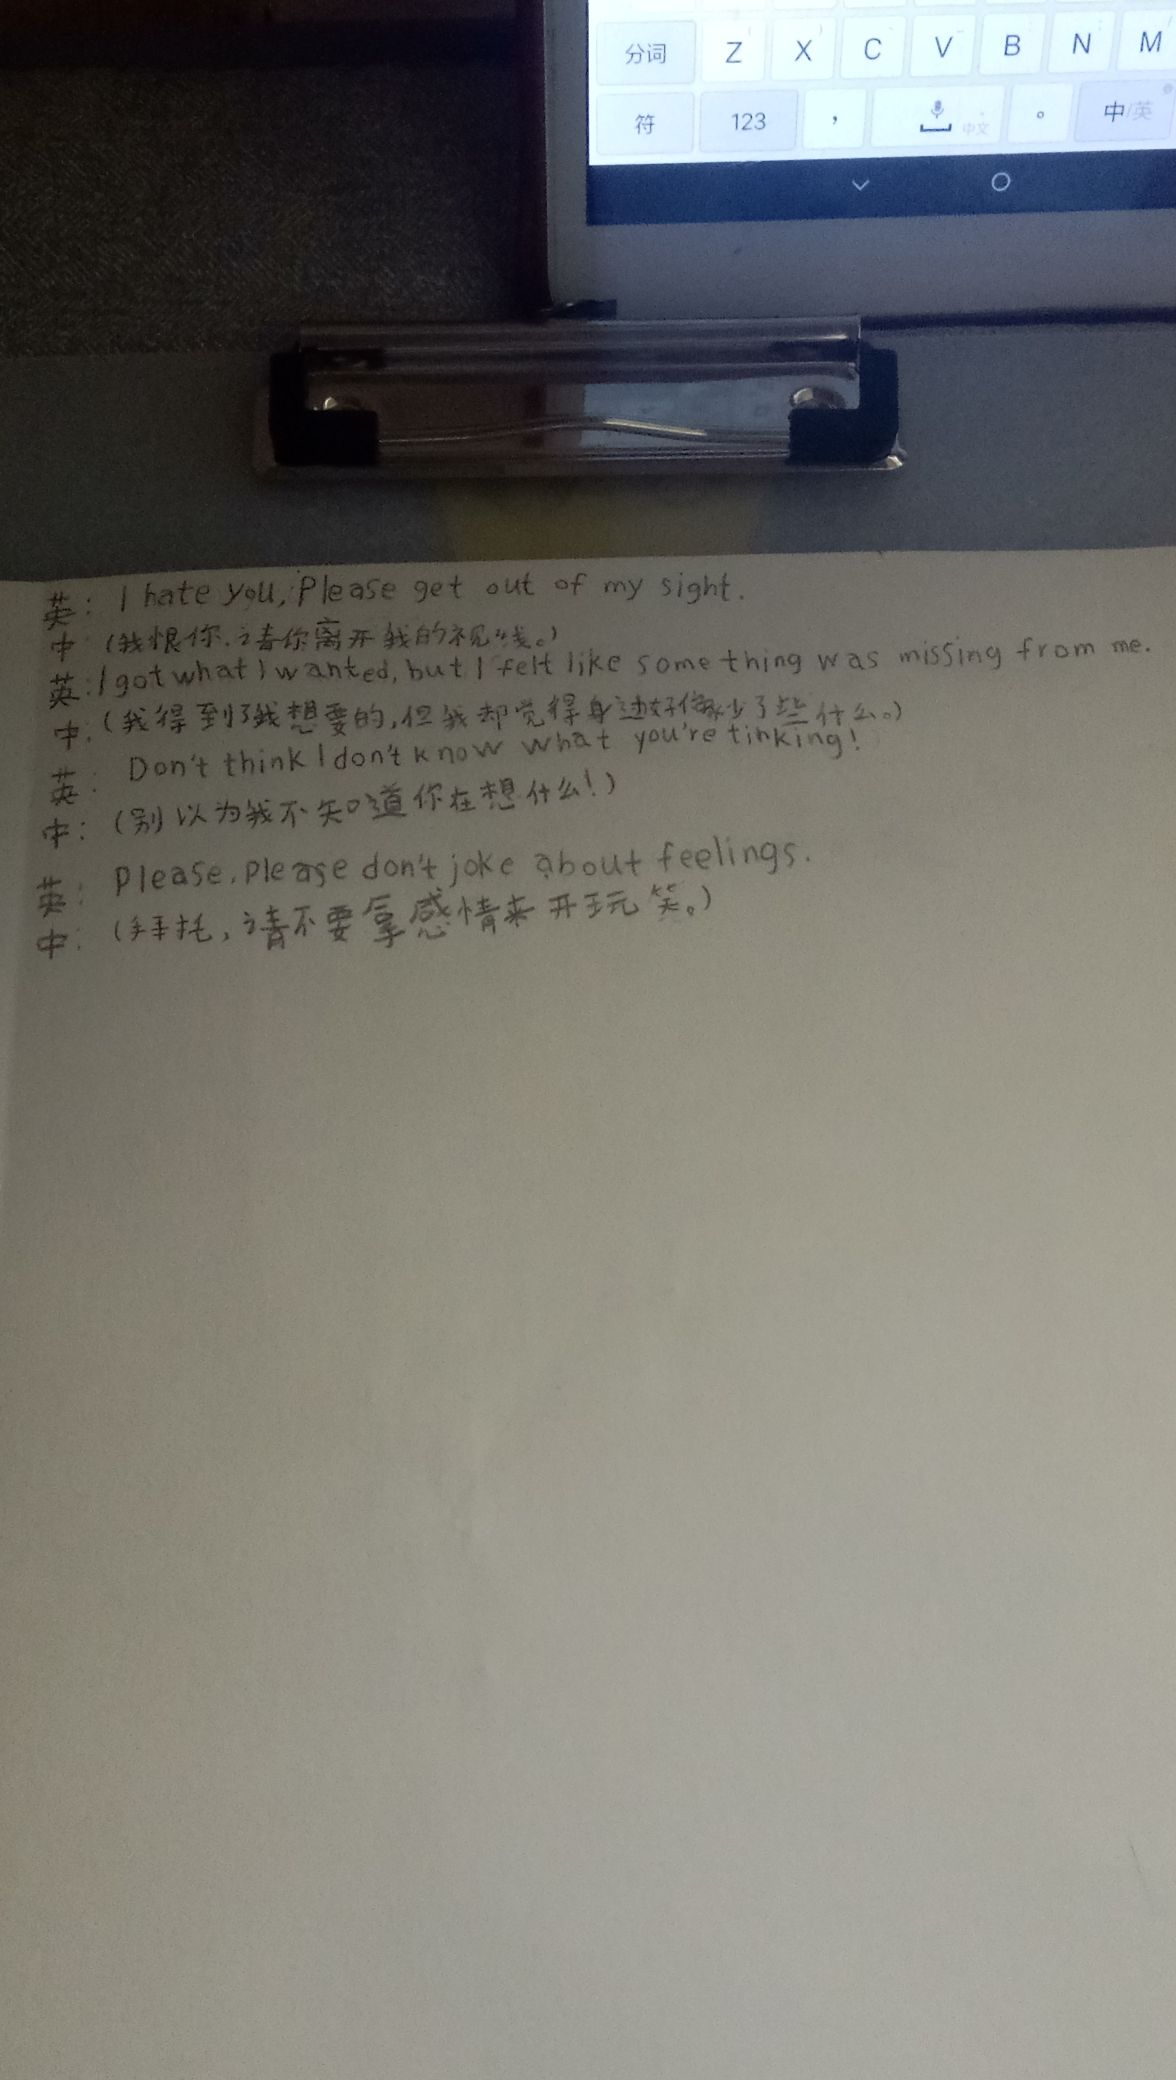 分词 Z X C V B N M
符 123 , 中文 。 中/英
英: I hate you, Please get out of my sight.
中 (我恨你.请你离开我的视线。)
英: I got what I wanted, but I felt like something was missing from me.
中: (我得到了我想要的,但我却觉得身边好像少了些什么。)
英: Don't think I don't know what you're tinking!
中: (别以为我不知道你在想什么!)
英: Please, please don't joke about feelings.
中: (拜托, 请不要拿感情来开玩笑。)